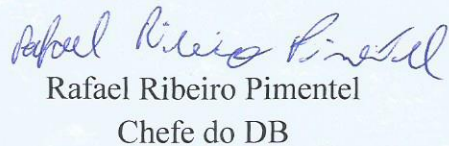 Rafael Ribeiro Pimentel
Rafael Ribeiro Pimentel
Chefe do DB